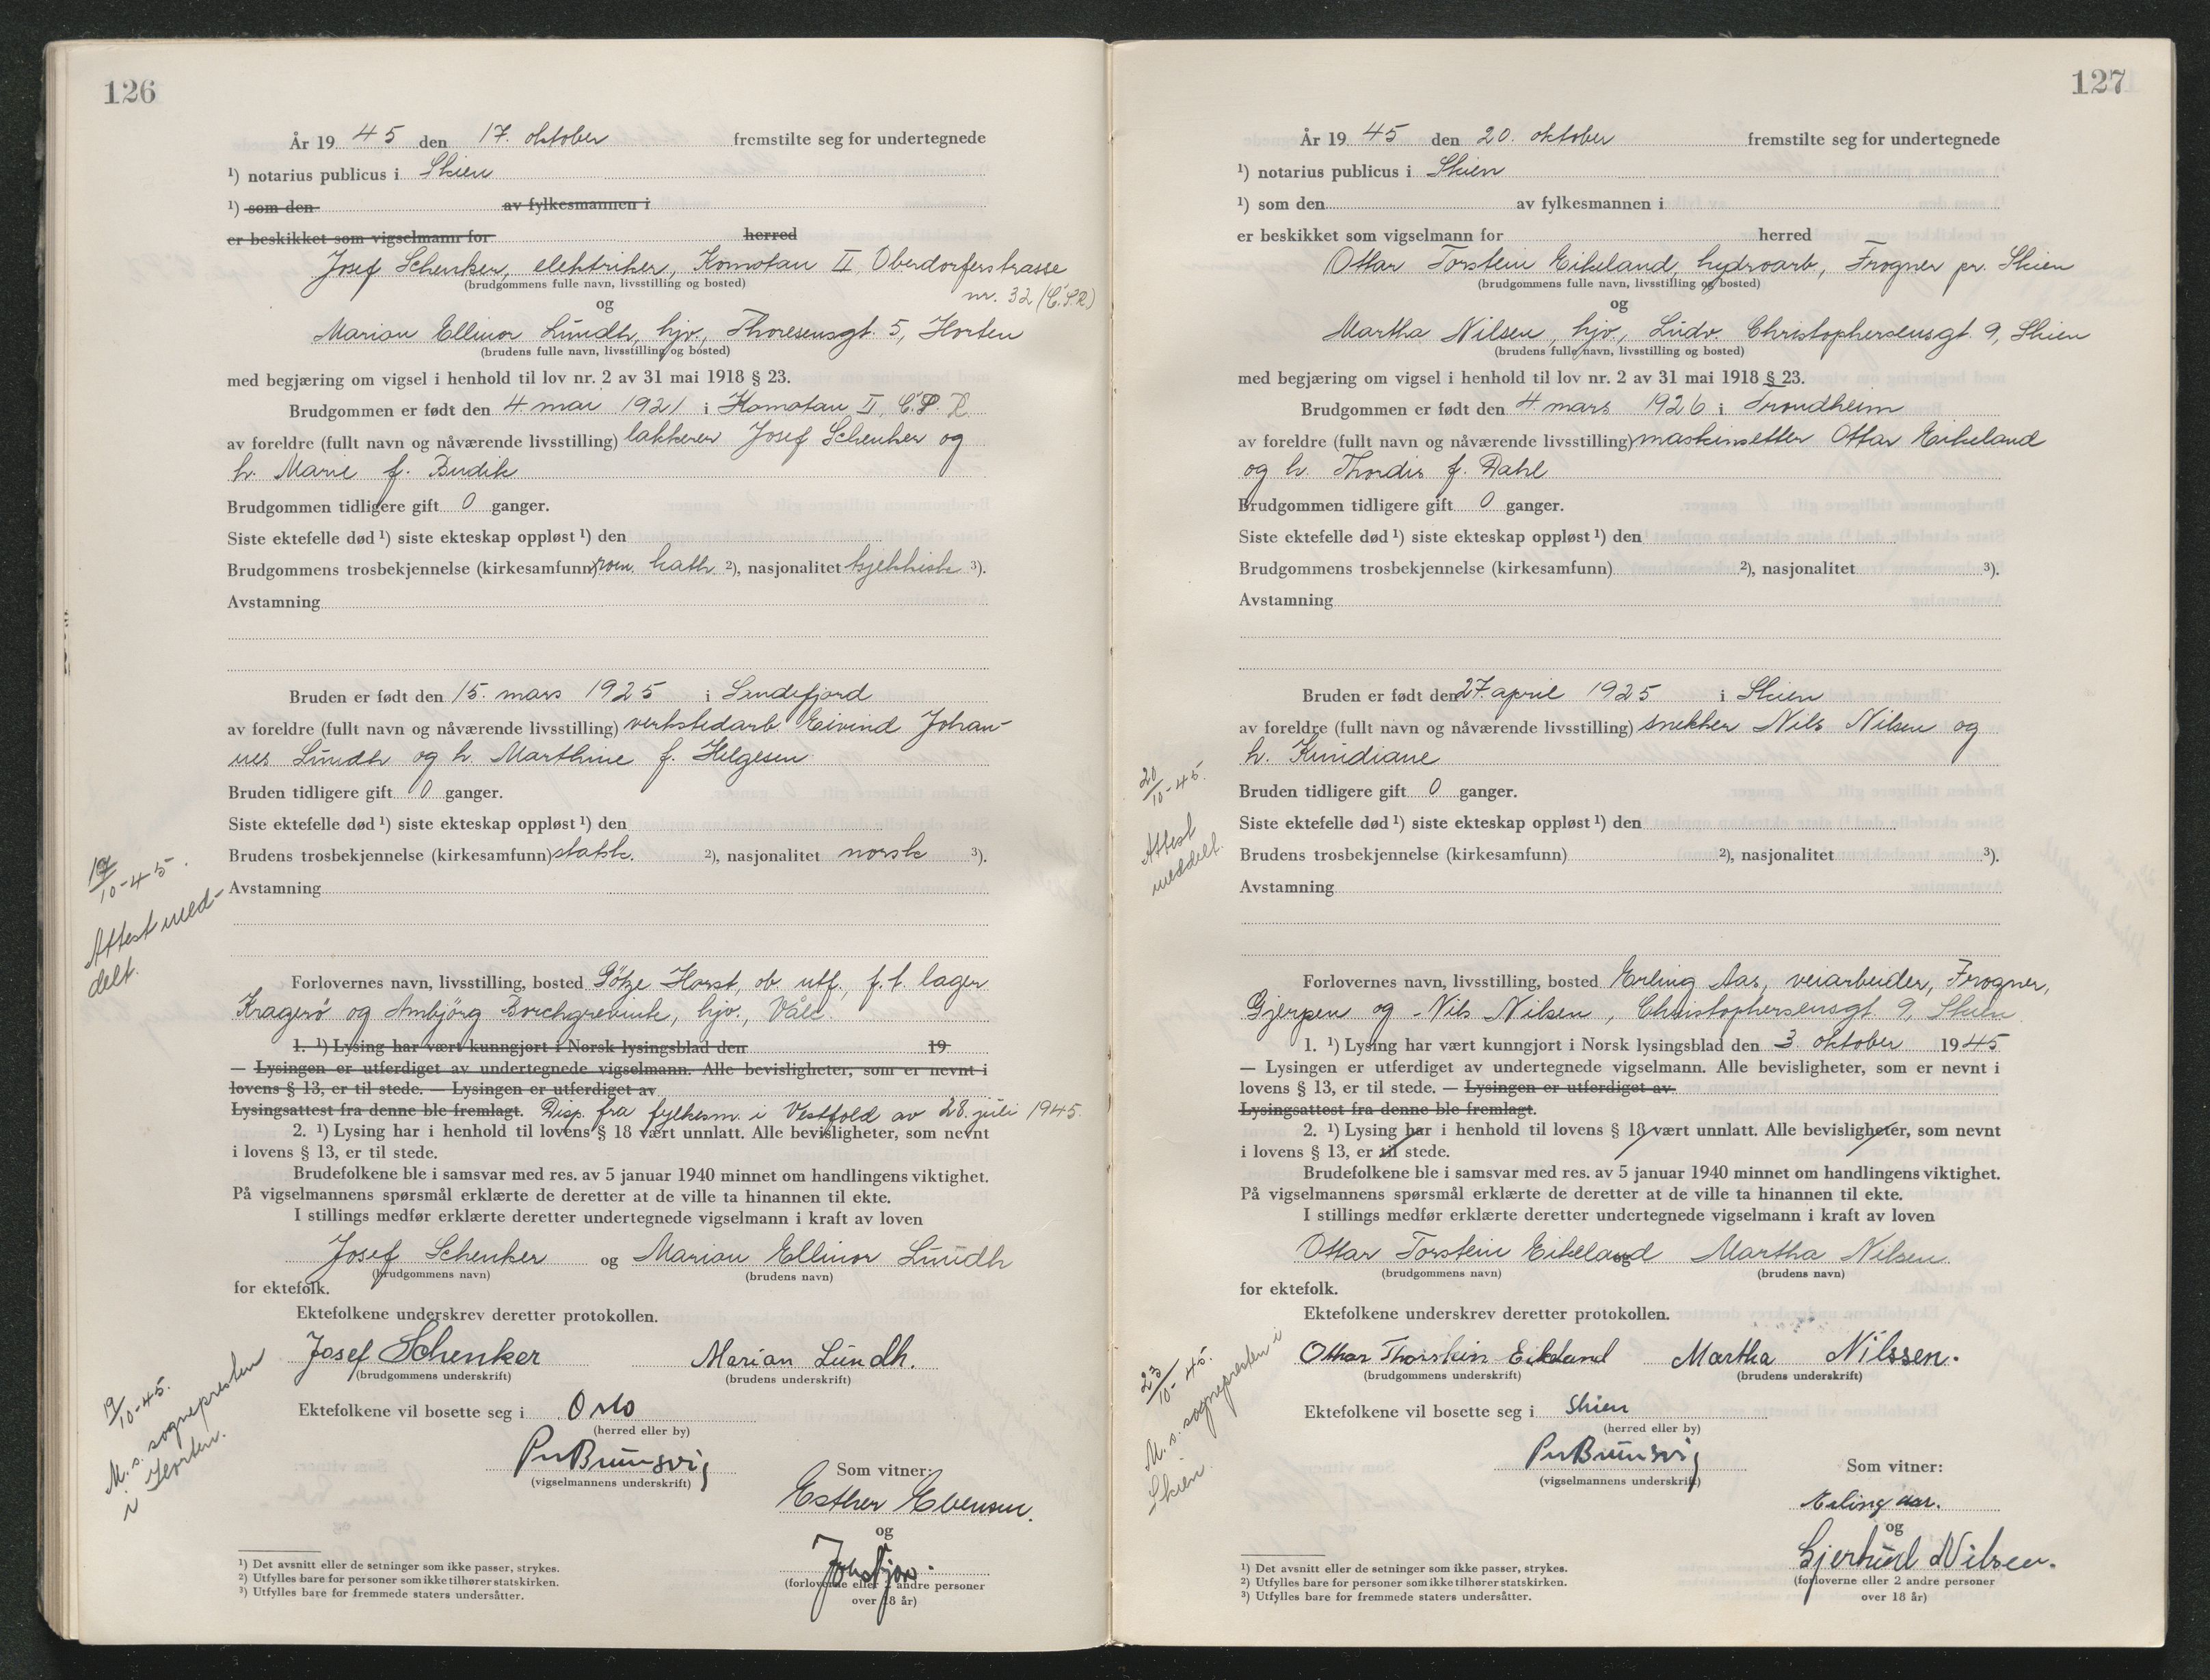 126
År 19 45 den 17. oktober fremstilte seg for undertegnede
¹) notarius publicus i Skien
¹) som den av fylkesmannen i
er beskikket som vigselmann for herred
Josef Schenker, elektriker, Komotau II, Oberdorferstrasse
nr. 32 (Č.S.R)
(brudgommens fulle navn, livsstilling og bosted)
og
Marian Ellinor Lundh, hjv., Thoresensgt. 5, Horten
(brudens fulle navn, livsstilling og bosted)
med begjæring om vigsel i henhold til lov nr. 2 av 31 mai 1918 § 23.
Brudgommen er født den 4. mai 1921 i Komotau II, Č.S.R.
av foreldre (fullt navn og nåværende livsstilling) lakkerer Josef Schenker og
h. Marie f. Budik
Brudgommen tidligere gift 0 ganger.
Siste ektefelle død ¹) siste ekteskap oppløst ¹) den
Brudgommens trosbekjennelse (kirkesamfunn) rom. kath. ²), nasjonalitet tsjekkisk ³).
Avstamning
Bruden er født den 15. mars 1925 i Sandefjord
av foreldre (fullt navn og nåværende livsstilling) verkstedarb. Eivind Johan-
nes Lundh og h. Marthine f. Helgesen
Bruden tidligere gift 0 ganger.
Siste ektefelle død ¹) siste ekteskap oppløst ¹) den
Brudens trosbekjennelse (kirkesamfunn) statsk. ²), nasjonalitet norsk ³).
Avstamning
/10-45.
Attest med-
delt.
Forlovernes navn, livsstilling, bosted Götze Horst, ob. utf., f.t. lager
Kragerö og Ambjörg Borchgrevink, hjv., Våle.
1. ¹) Lysing har vært kunngjort i Norsk lysingsblad den 19
— Lysingen er utferdiget av undertegnede vigselmann. Alle bevisligheter, som er nevnt i
lovens § 13, er til stede. — Lysingen er utferdiget av
Lysingsattest fra denne ble fremlagt. Disp. fra fylkesm. i Vestfold av 28. juli 1945.
2. ¹) Lysing har i henhold til lovens § 18 vært unnlatt. Alle bevisligheter, som nevnt
i lovens § 13, er til stede.
Brudefolkene ble i samsvar med res. av 5 januar 1940 minnet om handlingens viktighet.
På vigselmannens spørsmål erklærte de deretter at de ville ta hinannen til ekte.
I stillings medfør erklærte deretter undertegnede vigselmann i kraft av loven
Josef Schenker og Marian Ellinor Lundh
(brudgommens navn) (brudens navn)
for ektefolk.
Ektefolkene underskrev deretter protokollen.
Josef Schenker Marian Lundh.
(brudgommens underskrift) (brudens underskrift)
19/10-45.
M. s. sognepresten
i Horten.
Ektefolkene vil bosette seg i Oslo
(herred eller by)
(vigselmannens underskrift)
Som vitner:
Esther Evensen.
og
(forloverne eller 2 andre personer
over 18 år)
¹) Det avsnitt eller de setninger som ikke passer, strykes.
²) Utfylles bare for personer som ikke tilhører statskirken.
³) Utfylles bare for fremmede staters undersåtter.
127
År 19 45 den 20. oktober fremstilte seg for undertegnede
¹) notarius publicus i Skien
¹) som den av fylkesmannen i
er beskikket som vigselmann for herred
Ottar Torstein Eikeland, hydroarb., Frogner pr. Skien
(brudgommens fulle navn, livsstilling og bosted)
og
Martha Nilsen, hjv., Ludv. Christophersensgt. 9, Skien
(brudens fulle navn, livsstilling og bosted)
med begjæring om vigsel i henhold til lov nr. 2 av 31 mai 1918 § 23.
Brudgommen er født den 4. mars 1926 i Trondheim
av foreldre (fullt navn og nåværende livsstilling) maskinsetter Ottar Eikeland
og h. Thordis f. Dahl
Brudgommen tidligere gift 0 ganger.
Siste ektefelle død ¹) siste ekteskap oppløst ¹) den
Brudgommens trosbekjennelse (kirkesamfunn) ²), nasjonalitet ³).
Avstamning
Bruden er født den 27. april 1925 i Skien
av foreldre (fullt navn og nåværende livsstilling) snekker Nils Nilsen og
h. Kundiane
20/10-45.
Attest
meddelt.
Bruden tidligere gift 0 ganger.
Siste ektefelle død ¹) siste ekteskap oppløst ¹) den
Brudens trosbekjennelse (kirkesamfunn) ²), nasjonalitet ³).
Avstamning
Forlovernes navn, livsstilling, bosted Erling Aas, veiarbeider, Frogner,
Gjerpen og Nils Nilsen, Christophersensgt. 9, Skien
1. ¹) Lysing har vært kunngjort i Norsk lysingsblad den 3. oktober 1945
— Lysingen er utferdiget av undertegnede vigselmann. Alle bevisligheter, som er nevnt i
lovens § 13, er til stede. — Lysingen er utferdiget av
Lysingsattest fra denne ble fremlagt.
2. ¹) Lysing har i henhold til lovens § 18 vært unnlatt. Alle bevisligheter, som nevnt
i lovens § 13, er til stede.
Brudefolkene ble i samsvar med res. av 5 januar 1940 minnet om handlingens viktighet.
På vigselmannens spørsmål erklærte de deretter at de ville ta hinannen til ekte.
I stillings medfør erklærte deretter undertegnede vigselmann i kraft av loven
Ottar Torstein Eikeland og Martha Nilsen
(brudgommens navn) (brudens navn)
for ektefolk.
Ektefolkene underskrev deretter protokollen.
Ottar Thorstein Eikeland Martha Nilssen.
(brudgommens underskrift) (brudens underskrift)
23/10-45.
M. s. sognepresten i
Skien.
Ektefolkene vil bosette seg i Skien
(herred eller by)
(vigselmannens underskrift)
Som vitner:
Erling Aas.
og
Gjertrud Nilsen.
(forloverne eller 2 andre personer
over 18 år)
¹) Det avsnitt eller de setninger som ikke passer, strykes.
²) Utfylles bare for personer som ikke tilhører statskirken.
³) Utfylles bare for fremmede staters undersåtter.